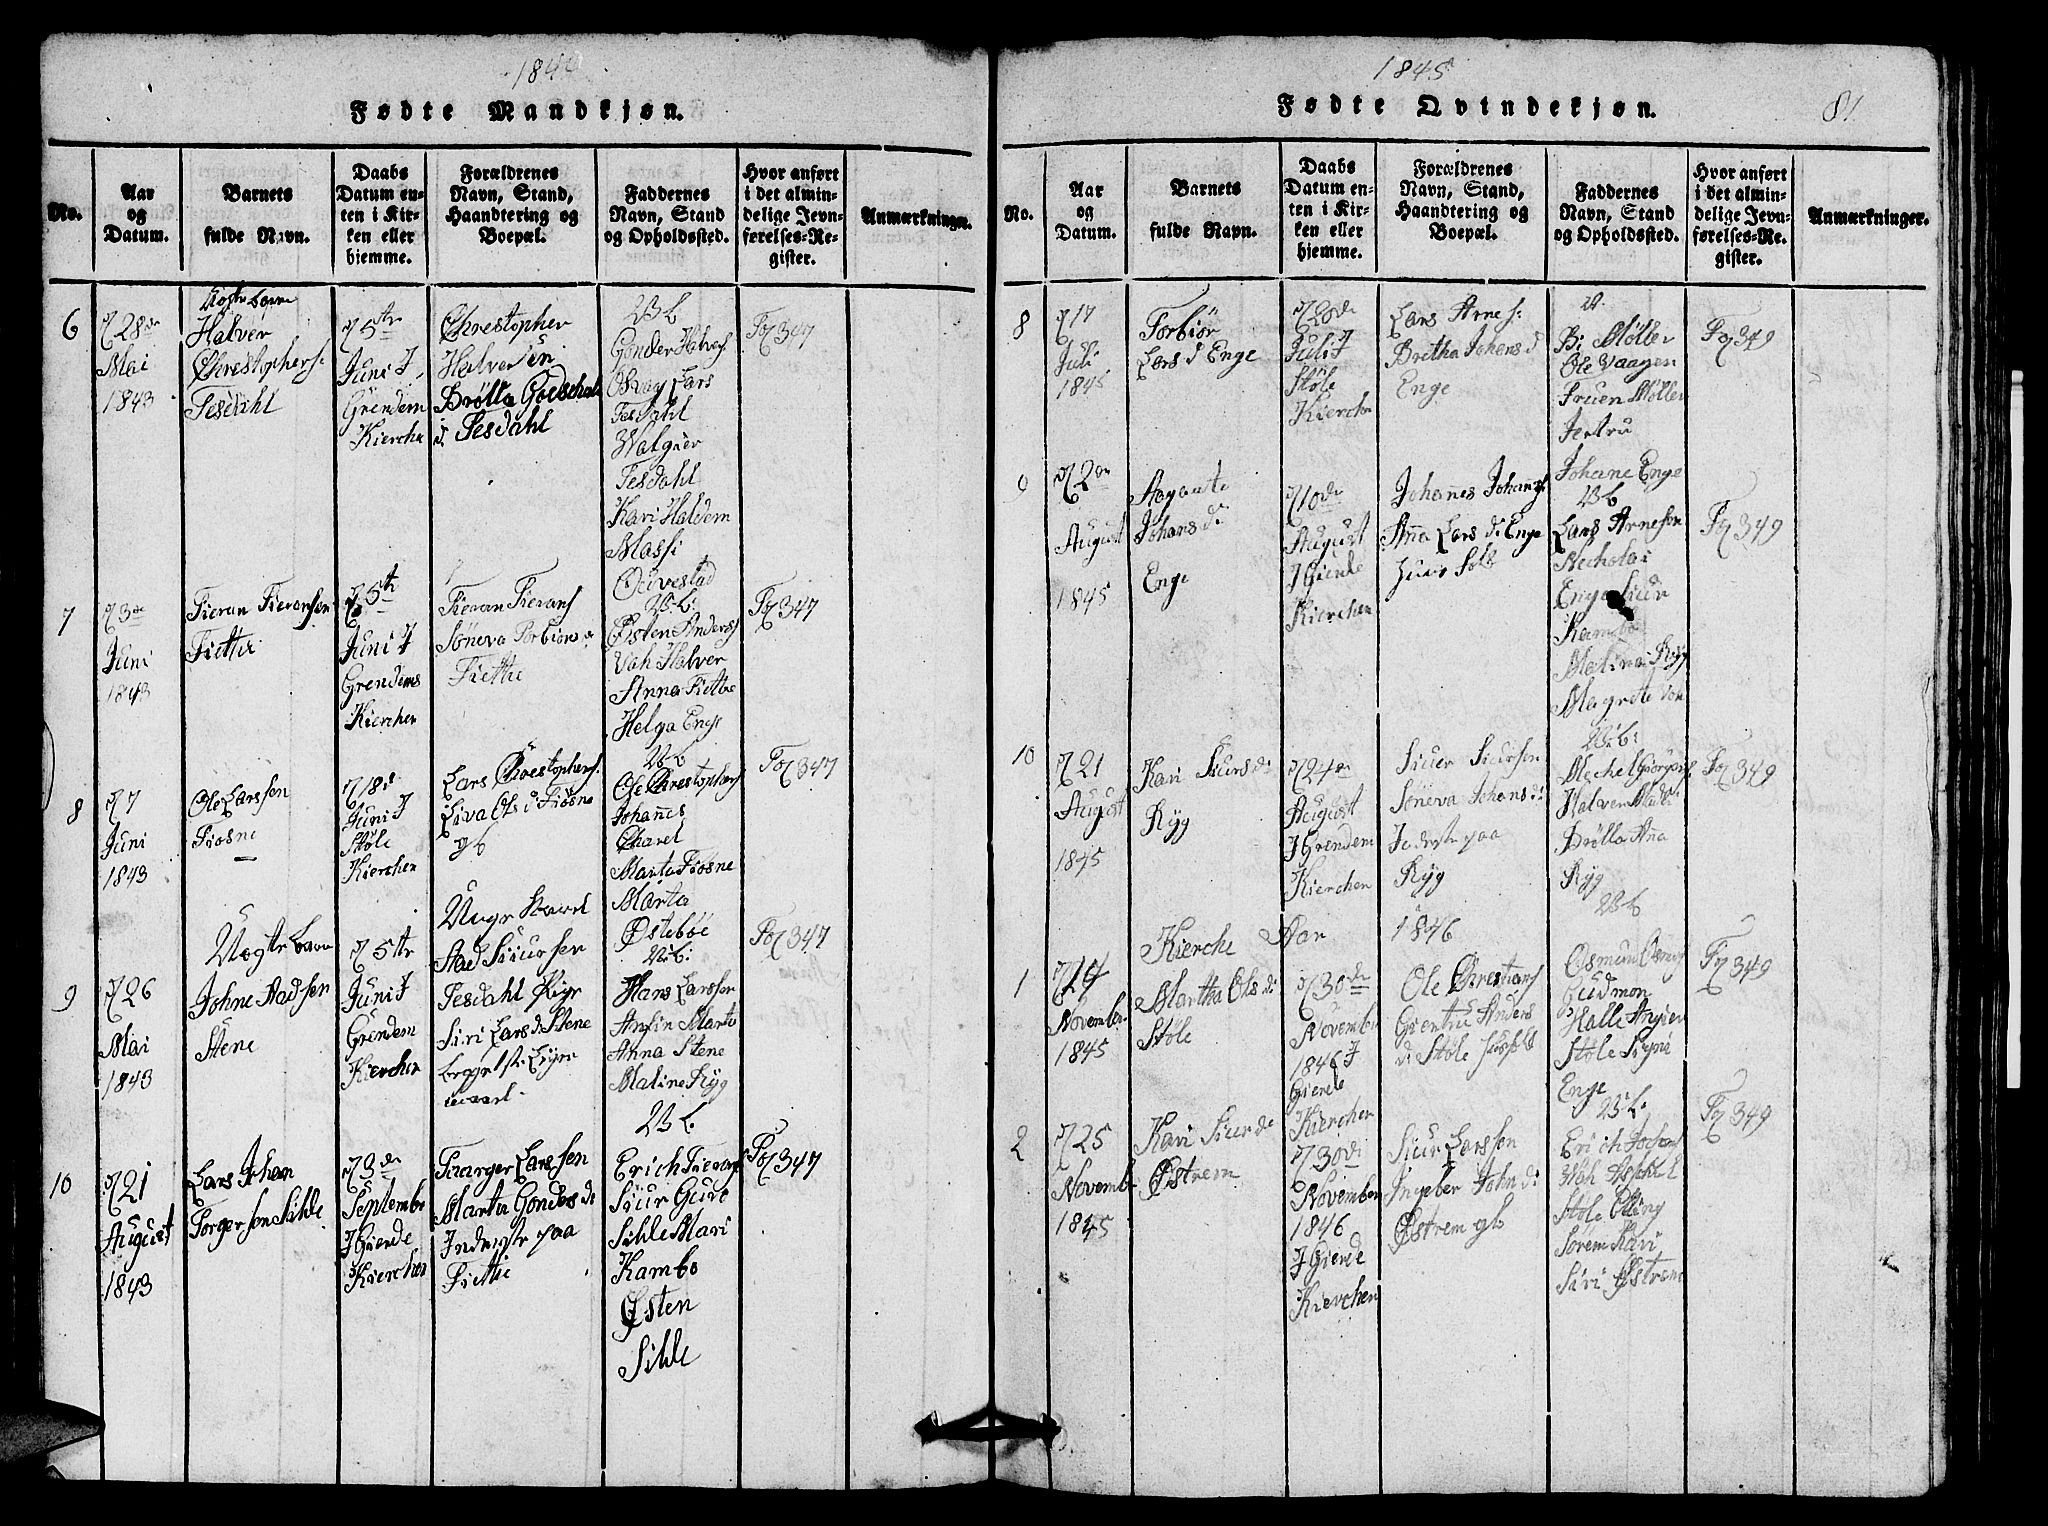 1844
Fødte Mandkjøn.
No.
Aar
og
Datum.
Barnets
fulde Navn.
Daabs
Datum en-
ten i Kir-
ken eller
hjemme.
Forældrenes
Navn, Stand,
Haandtering og
Boepæl.
Faddernes
Navn, Stand
og Opholdssted.
Hvor anført
i det almin-
delige Jevn-
førelses-Re-
gister.
Anmærkninger.
6
28de
Mai
1843
Halver
Chrestophers
Tesdahl
5te
Juni I
Grendem
Kierche
Chrestopher
Halversøn
Brølla Godschalk
d. Tesdahl
VB
Gonder Halvers
Osvag Lars
Tesdahl
Walguer
Tesdahl
Kari Haldem
Massi
Ølvestad
Fol 347
7
3de
Juni
1843
Sieran Sieransen
Fiette
5te
Juni I
Grendems
Kierchen
Sieran Sierans
Søneva Torbions
Fiette
VB
Østen Anders
Vah Halver
Anna Fiette
Helga Enge
Fol 347
8
7
Juni
1843
Ole Larssen
Fiøsne
18d
Juni I
Støle
Kierchen
Lars Chrestophers
Siva Ols d. Fiøsne
gb
VB
Ole Chrestophers
Johannes
Charel
Marta Fiøsne
Marta
Østebøe
Fol 347
Uegte barn
9
26
Mai
1843
Johne Aadsen
Stene
5te
Juni I
Grendem
Kierchen
Ungr Karl
Aad Siursen
Tesdahl Piger
Siri Lars d. Stene
VB
Hans Larssen
Anfin Marta
Anna Stene
Maline Ryg
Fol 347
10
21
August
1843
Lars Johan
Torgersen Sihle
3de
September
I Gierde
Kierchen
Taarger Larssen
Marta Gonders d.
Inderste paa
Fiette
VB
Erich Sierans
Siur Guro
Sihle Mari
Kambo
Østen
Sihle
Fol 347
1845
Fødte Qvindekjøn.
81
No.
Aar
og
Datum.
Barnets
fulde Navn.
Daabs
Datum en-
ten i Kir-
ken eller
hjemme.
Forældrenes
Navn, Stand,
Haandtering og
Boepæl.
Faddernes
Navn, Stand
og Opholdssted.
Hvor anført
i det almin-
delige Jevn-
førelses-Re-
gister.
Anmærkninger.
8
17
Juli
1845
Torbiør
Lars d Enge
20de
Juli I
Støle
Kierche
Lars Arnes:
Britha Johans d
Enge
Møller
Ole Vaagen
Fruen Møller
Jertru
Johane Enge
Fol 349
9
2den
August
1845
Aagaate
Johans d.
Enge
10de
August
I Gierde
Kierchen
Johannes Johans
Anna Lars d. Enge
VB
Lars Arnesen
Necholai
Enge Siur
Kambo
Malina Ryg
Magrete
Fol 349
10
21
August
1845
Kari Siurs d.
Ryg
24de
August
I Grendem
Kierchen
Siuer Siursen
Søneva Johans d.
Inderste paa
Ryg
VB:
Mechel Giorgens
Halver Mads
Brølla Ana
Ryg
Fol 349
Kierche Aar 1846
1
14
November
1845
Martha Ols d.
Støle
30de
November
1846 I
Gierde
Kierchen
Ole Chrestians
Giertru Anders
d. Støle
VB
Osmun Osmuns
Gudmon
Halle Angier
Støle Signi
Enge
Fol 349
2
25
November
1845
Kari Siur d.
Østrem
30de
November
1846
I Gierde
Kierchen
Siur Larssen
Ingeber John d.
Østrem gb
VB:
Erich Johans
Støle Elling
Sørem Kari
Siri Østrem
Fol 349